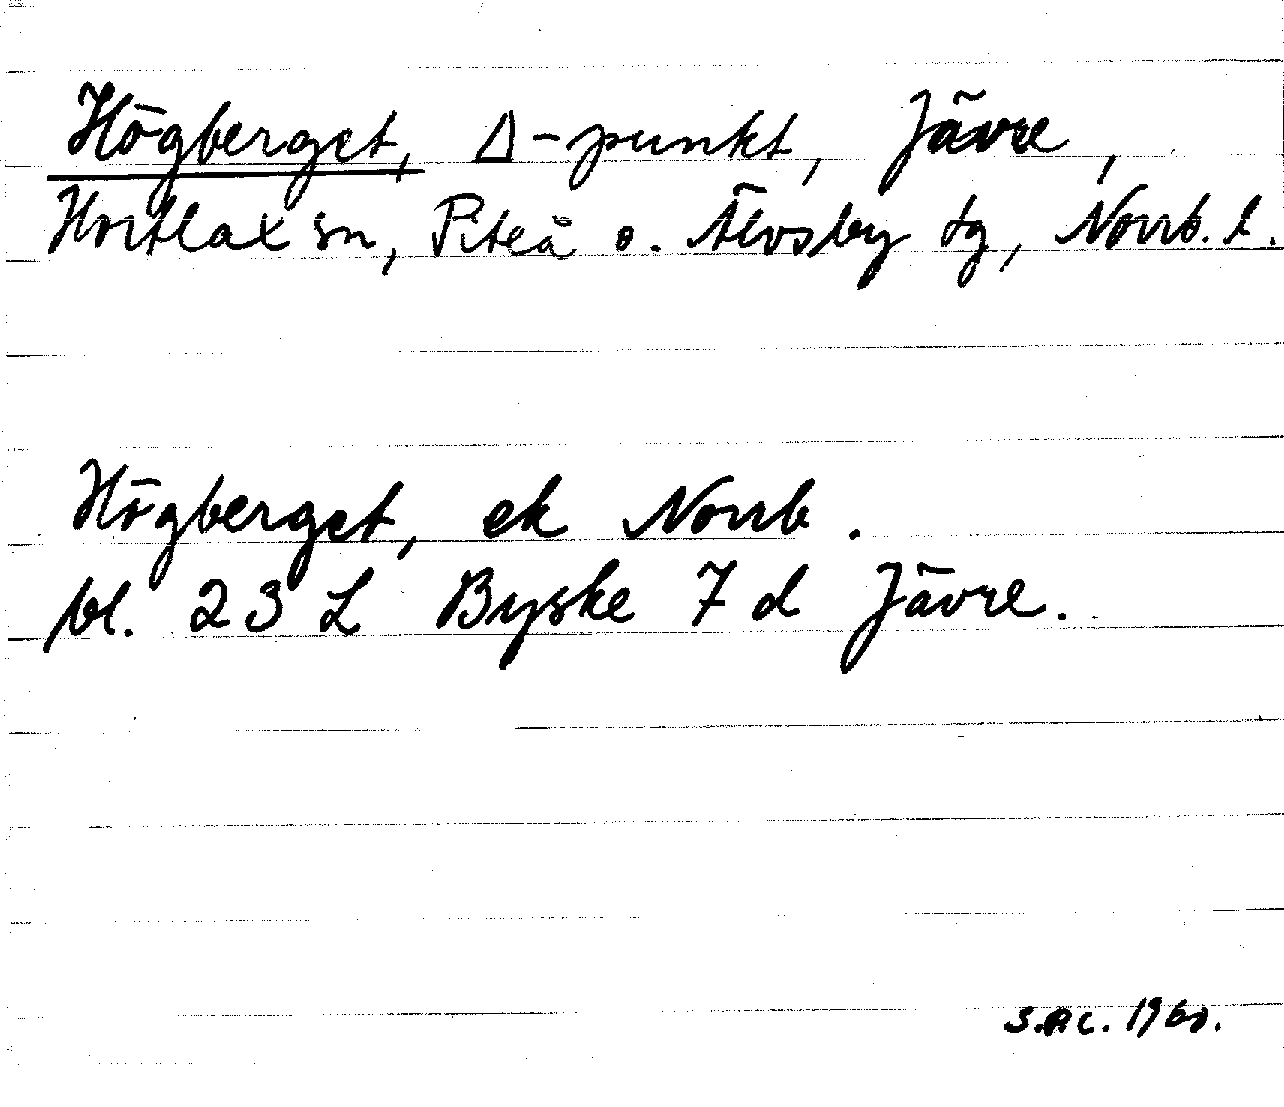 Högberget, Δ-punkt, Jävre,
Hortlax sn, Piteå o. Älvsby tg, Norrb. l.
Högberget, ek Norrb.
bl. 23 L Byske 7 d Jävre.
S.AC. 1960.